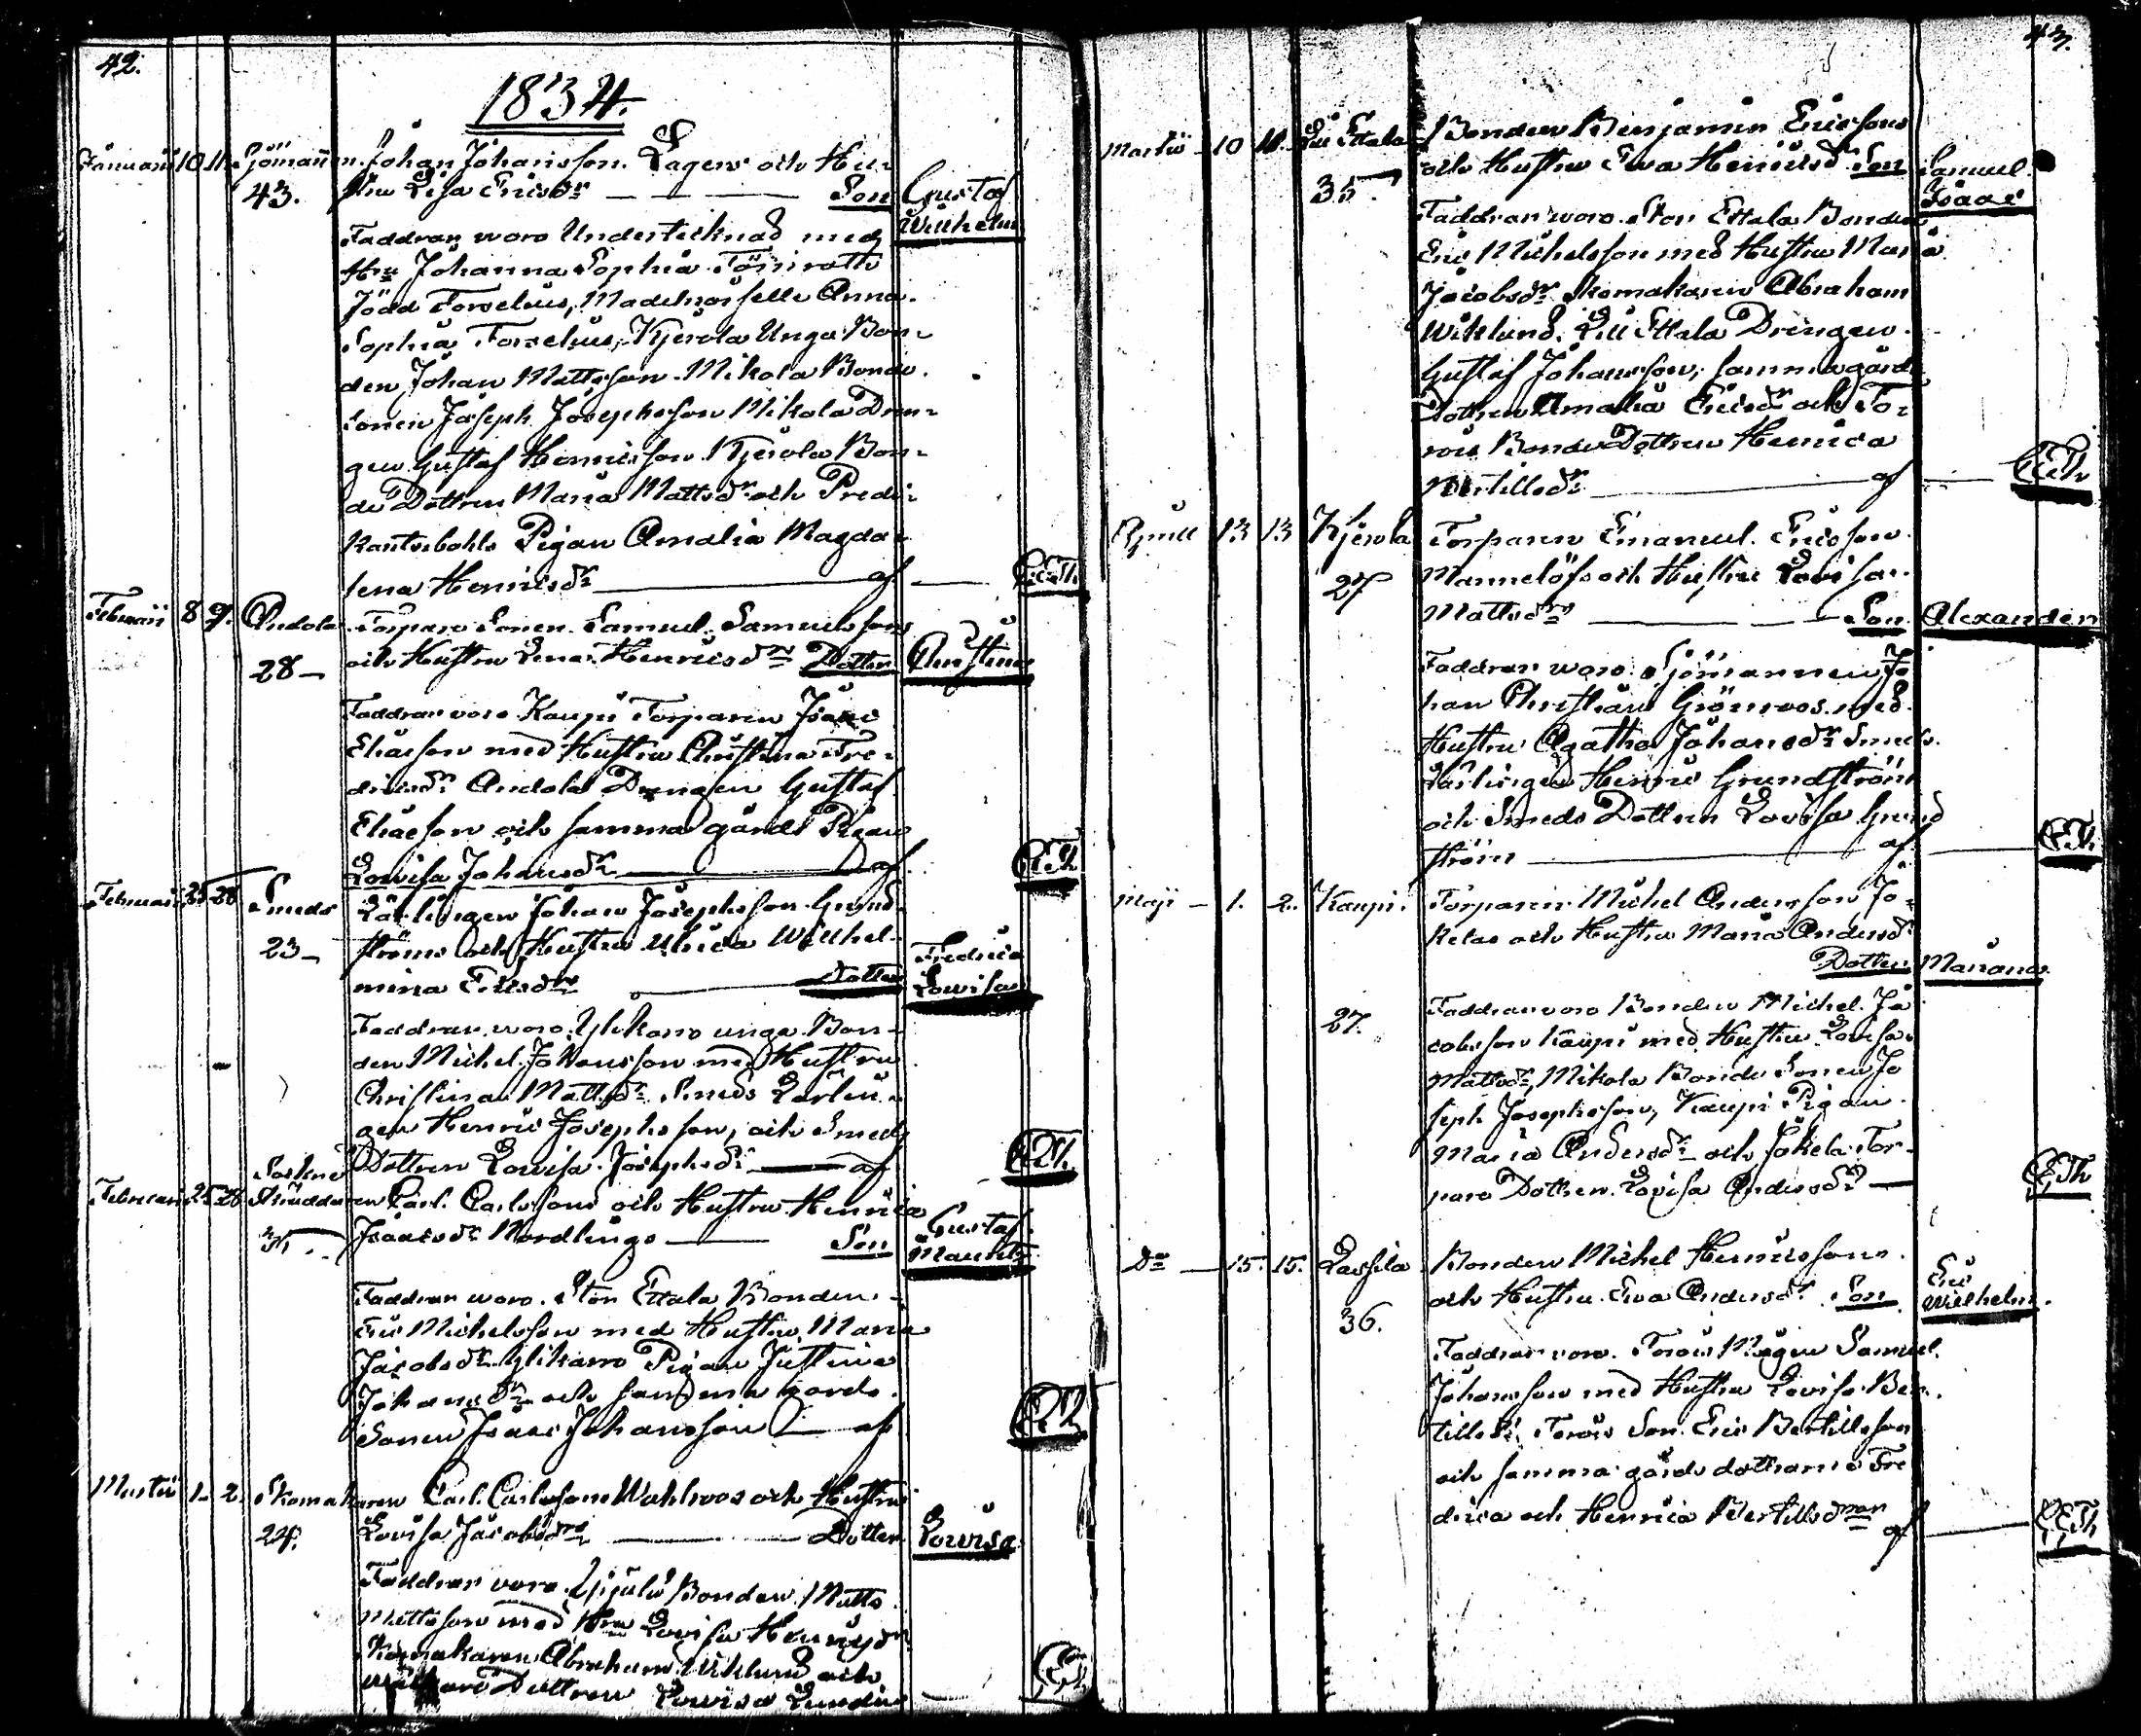 42.
1834.
Januarii 10 11. Sjöman Johan Johansson Lagers och Hu-
43. stru Lisa Ericsdr Son Gustaf
Wilhelm
Faddran woro Undertecknad med
Hru Johanna Sophia Törnroth
född Forselius, Mademoiselle Anna
Sophia Forselius, Kjerola Unga Bon-
den Johan Mattsson Mikola Bonde
sonen Joseph Josephsson Mikola Dren-
gen Gustaf Henricsson Kjerola Bon-
de Dottren Maria Mattsdr och Predi-
kantsbohls Pigan Amalia Magda-
lena Henricsdr af
Februarii 8 9. Andola Torpare Sonen Samuel Samuelssons
28 och Hustru Lena Henricsdr Dotter Christina
Faddran woro Kaupi Torparen Isaac
Eliæson med Hustru Christina Fre-
dricsdr Andola Drengen Gustaf
Eliæson och samma gårds Pigan
Lovisa Johansdr af
Februarii 25 28 Smeds Lärlingen Johan Josephsson Grund-
23 ströms och Hustru Ulrica Willhel-
mina Ericsdr Dotter Fredrica
Lowisa
Faddran woro Ylikaro unga Bon-
den Michel Johansson med Hustru
Christina Mattsdr Smeds Lärlin-
gen Henric Josephsson, och Smeds
Dottren Lovisa Josephsdr af
Februarii 25 26 Sockne Skräddaren Carl Carlssons och Hustru Henrica
35 Isaacsdr Nordlings Son Gustaf
Mauritz
Faddran woro Stor Ettala Bonden
Eric Michelsson med Hustru Maria
Jacobsdr Ylikaro Pigan Justina
Johansdr och samma gårds
Sonen Isaac Johansson af
Martii 1. 2. Skomakaren Carl Carlssons Wahlroos och Hustru
Lovisa Jacobsdr Dotter Lovisa
Faddran voro Yijälä Bonden Matts
Mattsson med Hru Lovisa Henricsdr
Skomakaren Abraham Wiklund och
Dottren Lovisa Lundin
43.
Martii 10 11. Lill Ettala Bonden Benjamin Ericssons
35 och Hustru Eva Henricsdr Son Samuel
Isaac
Faddran woro Stor Ettala Bonden
Eric Michelsson med Hustru Maria
Jacobsdr Skomakaren Abraham
Wiklund. Lill Ettala Drengen
Gustaf Johansson, samma gårds
Dottren Amalia Ericsdr och To-
rois Bonde Dottren Henrica
Bertillsdr af
Aprill 13 13 Kjerola Torparen Emanuel Ericsson
27 Mannelöfs och Hustru Lovisa
Mattsdr Son Alexander
Faddran woro Sjömannen Jo-
han Christian Grönroos med
Hustru Agatha Johansdr Smeds
Lärlingen Henric Grundström
och Smeds Dottren Lovisa Grund
ström af
Maji 1. 2. Kaupi Torparen Michel Andersson Jo-
kelas och Hustru Maria Andersdr
Dotter Mariana
27. Faddran woro Bonden Michel Ja
cobsson Kaupi med Hustru Lovisa
Mattsdr, Mikola Bonde Sonen Jo
seph Josephsson, Kaupi Pigan
Maria Andersdr och Jokela Tor-
pare Dottren Lovisa Andersdr
Do 15. 15. Lassila Bonden Michel Henricssons
36. och Hustru Eva Andersdr Son Eric
Wilhelm.
Faddran woro Torois Mågen Samuel
Johansson med Hustru Lovisa Ber-
tillsdr Torois Son Eric Bertillsson
och samma gårds dottrarne Fre
drica och Henrica Bertillsdrar af